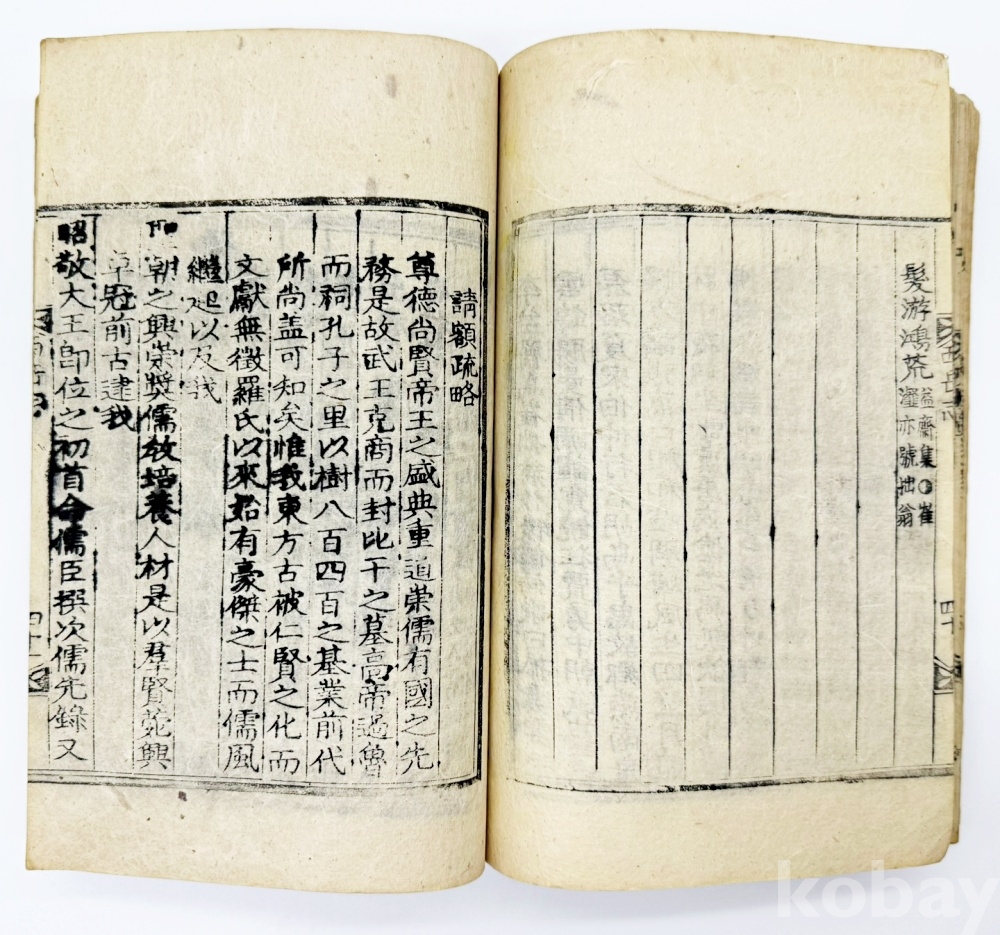 髮游鴻荒
益齋集〇崔
瀣亦號拙翁
四十
請額疏略
尊德尚賢帝王之盛典重道崇儒有國之先
務是故武王克商而封比干之墓高帝過魯
而祠孔子之里以樹八百四百之基業前代
所尚盖可知矣惟我東方古被仁賢之化而
文獻無徵羅氏以來始有豪傑之士而儒風
繼起以及我
朝之興崇奬儒教培養人材是以羣賢蔚興
卓冠前古逮我
昭敬大王卽位之初首命儒臣撰次儒先錄又
kobay